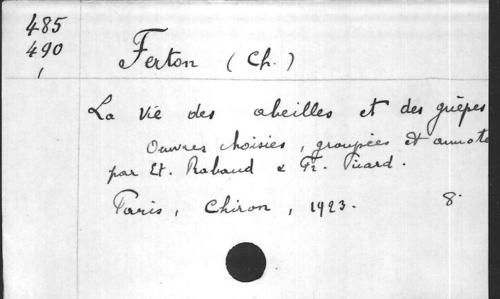 485
490
1
Ferton (Ch.)
La Vie des abeilles et des guêpes
Ouvres choisies, groupées et annoté
par Et. Rabaud & Fr. Picard.
Paris, Chiron, 1923. 8°